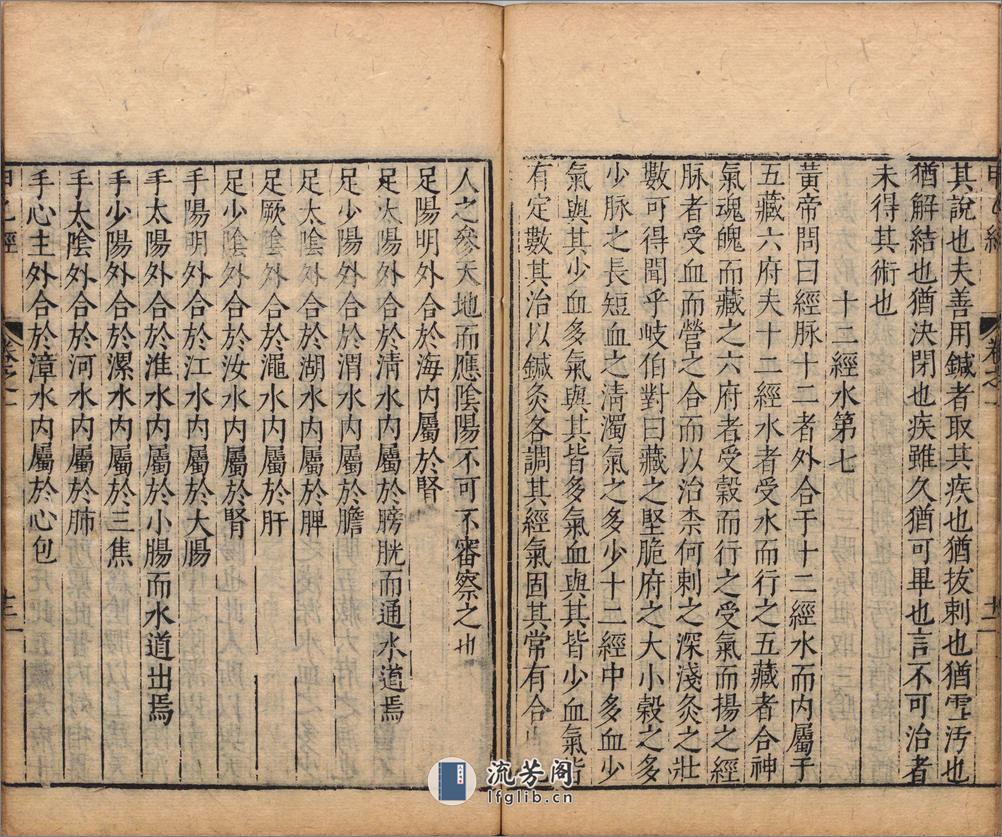 甲乙經
卷之一
其說也夫善用鍼者取其疾也猶拔刺也猶雪汚也
猶解結也猶決閉也疾雖久猶可畢也言不可治者
未得其術也
十二經水第七
黃帝問曰經脉十二者外合于十二經水而內屬于
五藏六府夫十二經水者受水而行之五藏者合神
氣魂魄而藏之六府者受穀而行之受氣而揚之經
脉者受血而營之合而以治柰何刺之深淺灸之壯
數可得聞乎岐伯對曰藏之堅脆府之大小穀之多
少脉之長短血之清濁氣之多少十二經中多血少
氣與其少血多氣與其皆多氣血與其皆少血氣皆
有定數其治以鍼灸各調其經氣固其常有合也
人之參天地而應陰陽不可不審察之也
足陽明外合於海水內屬於胃
足太陽外合於清水內屬於膀胱而通水道焉
足少陽外合於渭水內屬於膽
足太陰外合於湖水內屬於脾
足厥陰外合於澠水內屬於肝
足少陰外合於汝水內屬於腎
手陽明外合於江水內屬於大腸
手太陽外合於淮水內屬於小腸而水道出焉
手少陽外合於漯水內屬於三焦
手太陰外合於河水內屬於肺
手心主外合於漳水內屬於心包
甲乙經
卷之一
流芳阁
lfglib.cn